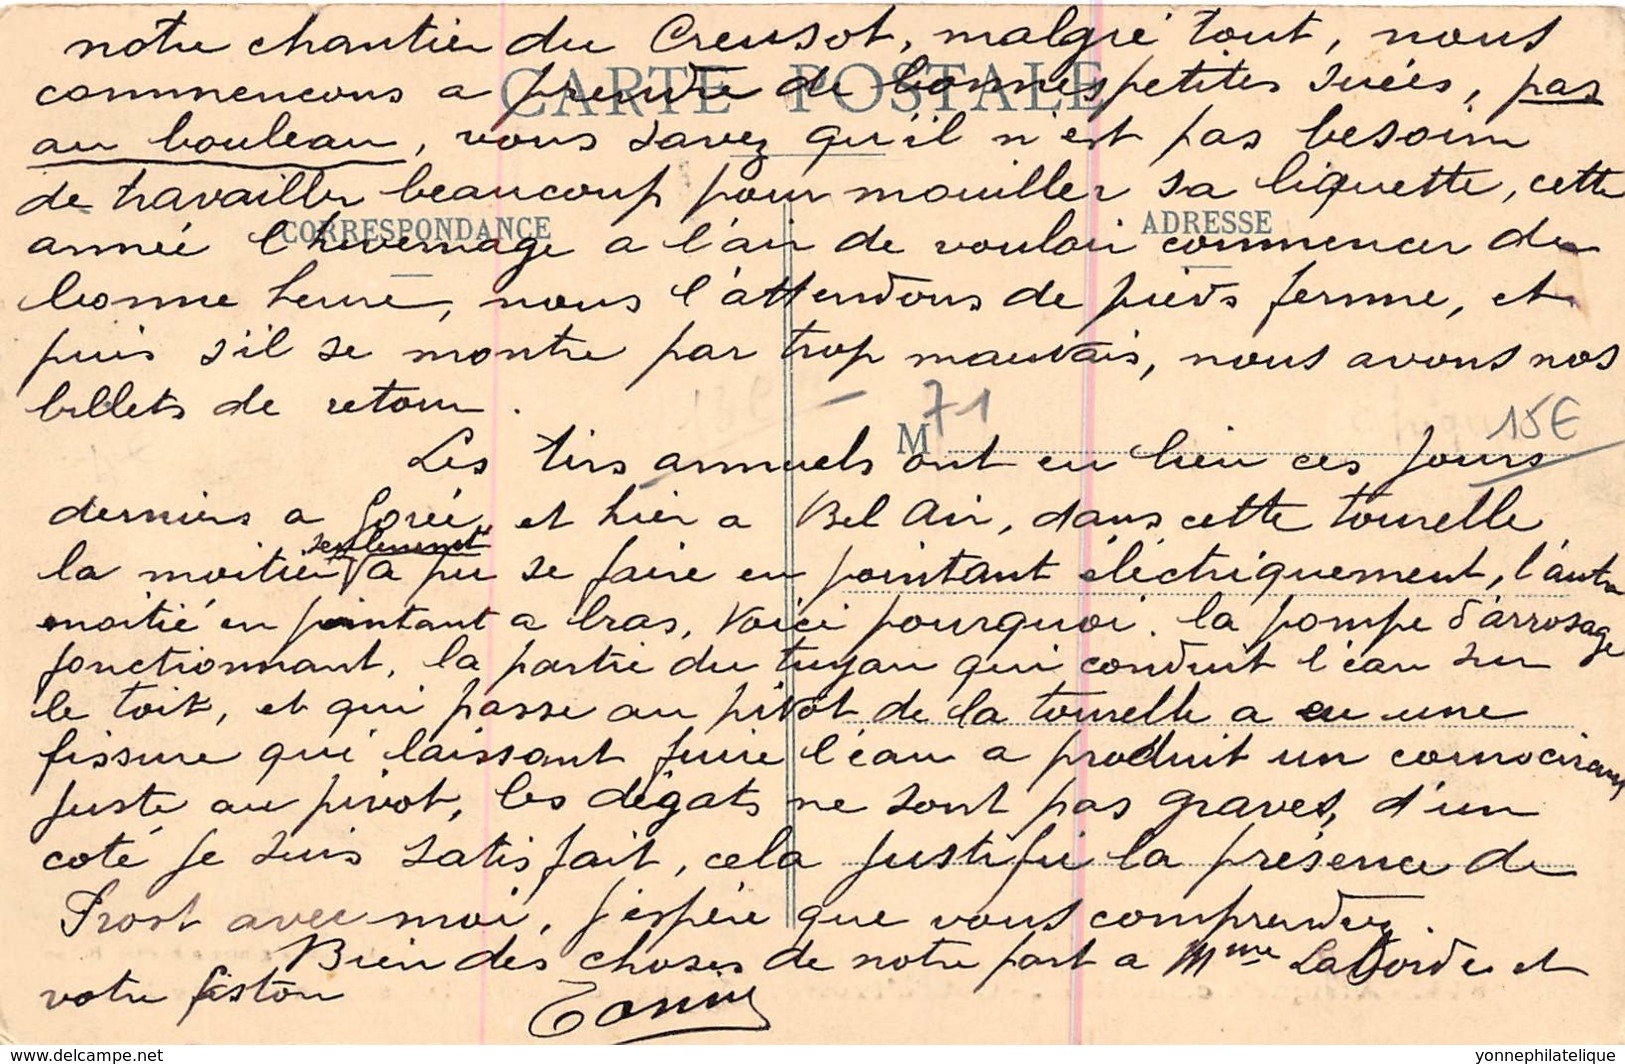 notre chantier du Creusot, malgré tout, nous
CARTE POSTALE
commencons a prendre de bonnes petites suées, pas
au bouleau, vous savez qu'il n'est pas besoin
de travailler beaucoup pour mouiller sa liquette, cette
CORRESPONDANCE
ADRESSE
année l'hivernage a l'air de vouloir commencer de
bonne heure, nous l'attendons de pieds ferme, et
puis s'il se montre par trop mauvais, nous avons nos
billets de retour.
71
15€
M
Les tirs annuels ont eu lieu ces jours
derniers a Gorée, et hier a Bel Air, dans cette tourelle
seulement
la moitié a pu se faire en pointant électriquement, l'autre
moitié en pointant a bras. Voici pourquoi. la pompe d'arrosage
fonctionnant, la partie du tuyau qui conduit l'eau sur
le toit, et qui passe au pivot de la tourelle a eu une
fissure qui laissant fuire l'eau a produit un
juste au pivot, les dégats ne sont pas graves, d'un
coté je suis satisfait, cela justifie la présence de
Prost avec moi, j'espère que vous comprendrez.
Bien des choses de notre part a Mme Laborde et
votre fiston
yonnephilatelique
www.delcampe.net